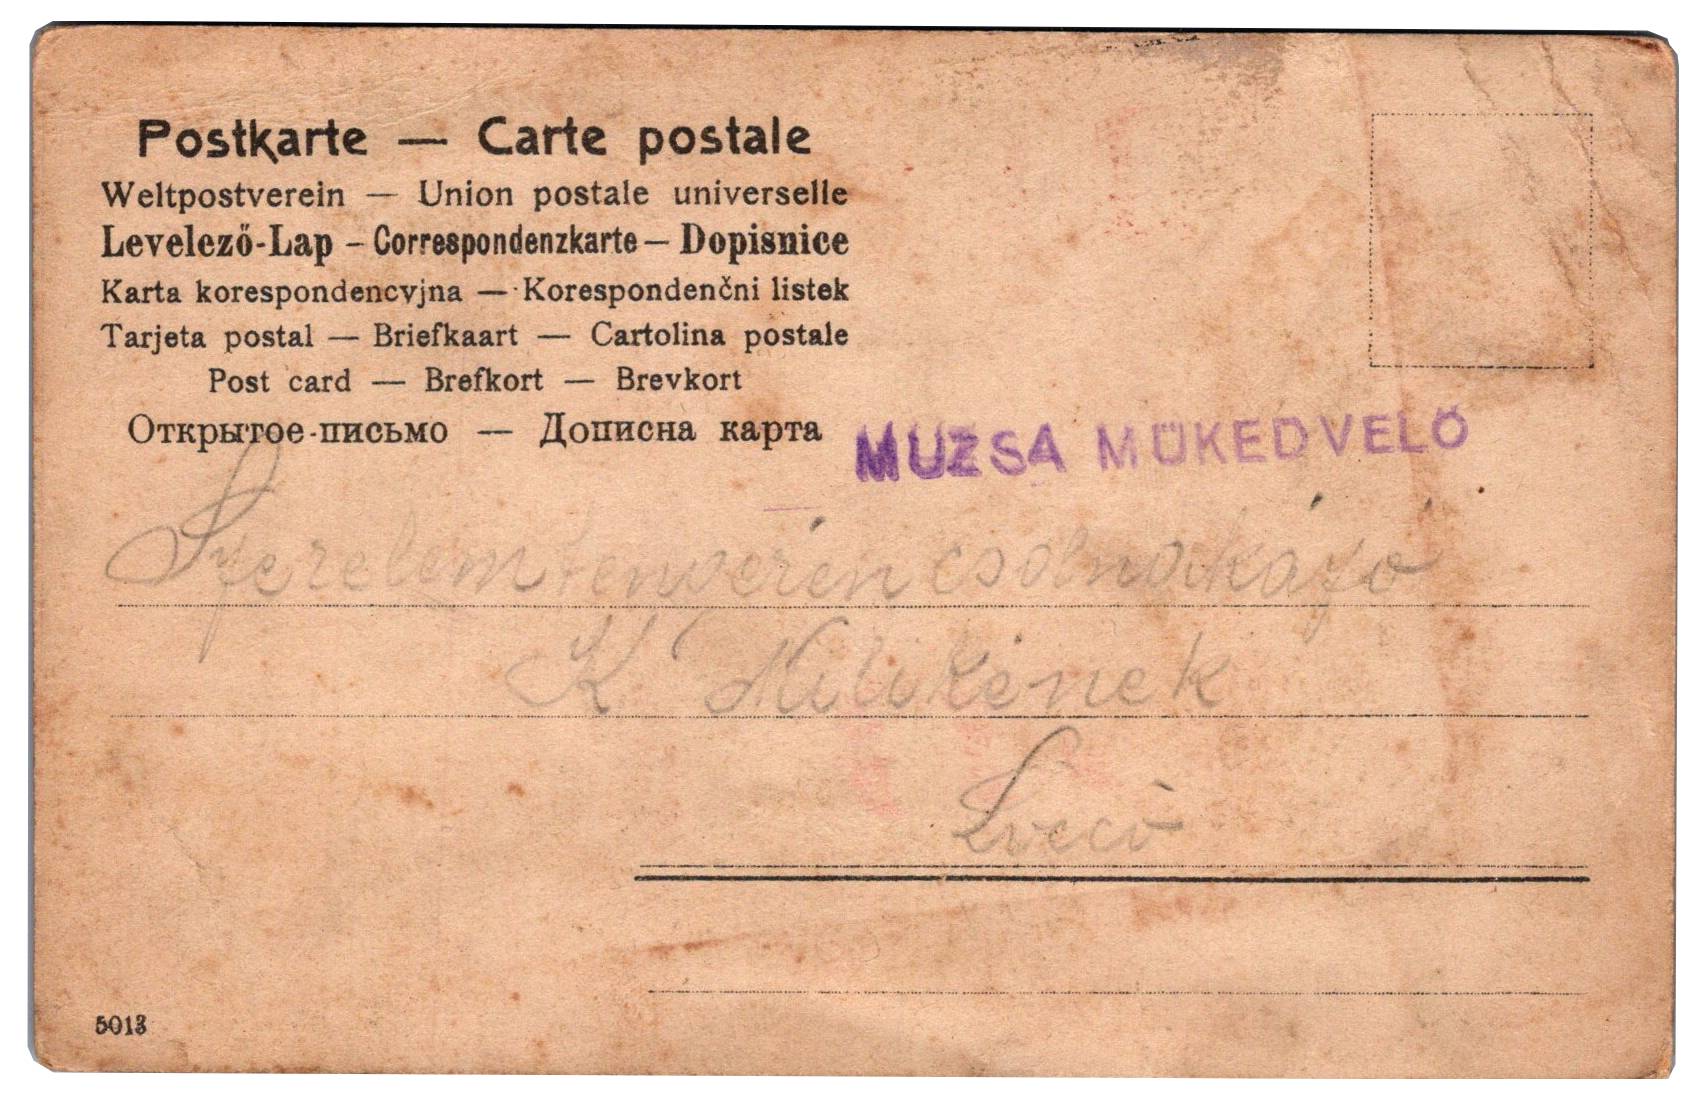 Postkarte — Carte postale
Weltpostverein — Union postale universelle
Levelező-Lap – Correspondenzkarte – Dopisnice
Karta korespondencyjna — Korespondenčni listek
Tarjeta postal — Briefkaart — Cartolina postale
Post card — Brefkort — Brevkort
Открытое-письмо — Дописна карта
MUZSA MŰKEDVELŐ
Szerelem tengerén csolnakázó
K Milikének
5013